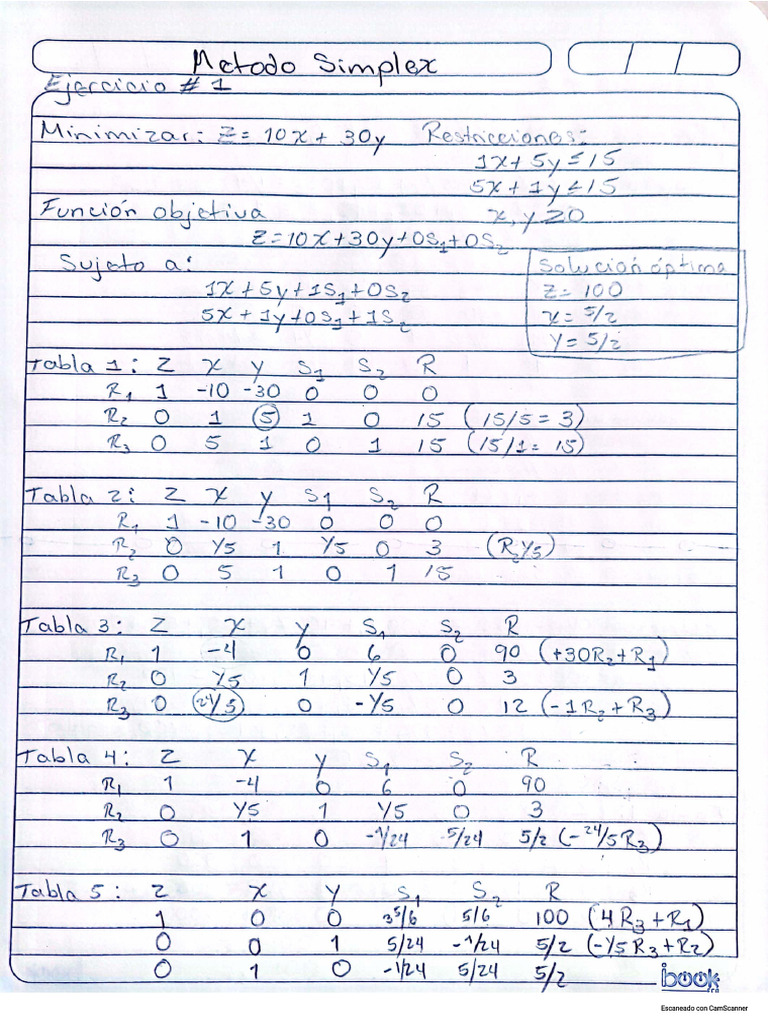 Metodo Simplex
Ejercicio # 1
Minimizar: Z = 10x + 30y   Restricciones:
1x + 5y ≤ 15
5x + 1y ≤ 15
Función objetiva   x, y ≥ 0
Z = 10x + 30y + 0S1 + 0S2
Sujeto a:   Solución óptima
1x + 5y + 1S1 + 0S2   Z = 100
5x + 1y + 0S1 + 1S2   x = 5/2
y = 5/2
Tabla 1: Z x y S1 S2 R
R1 1 -10 -30 0 0 0
R2 0 1 5 1 0 15 (15/5 = 3)
R3 0 5 1 0 1 15 (15/1 = 15)
Tabla 2: Z x y S1 S2 R
R1 1 -10 -30 0 0 0
R2 0 1/5 1 1/5 0 3 (R2 1/5)
R3 0 5 1 0 1 15
Tabla 3: Z x y S1 S2 R
R1 1 -4 0 6 0 90 (+30R2 + R1)
R2 0 1/5 1 1/5 0 3
R3 0 24/5 0 -1/5 0 12 (-1R2 + R3)
Tabla 4: Z x y S1 S2 R
R1 1 -4 0 6 0 90
R2 0 1/5 1 1/5 0 3
R3 0 1 0 -1/24 -5/24 5/2 (-24/5 R3)
Tabla 5: Z x y S1 S2 R
1 0 0 35/6 5/6 100 (4R3 + R1)
0 0 1 5/24 -1/24 5/2 (-1/5 R3 + R2)
0 1 0 -1/24 5/24 5/2
ibook
Escaneado con CamScanner